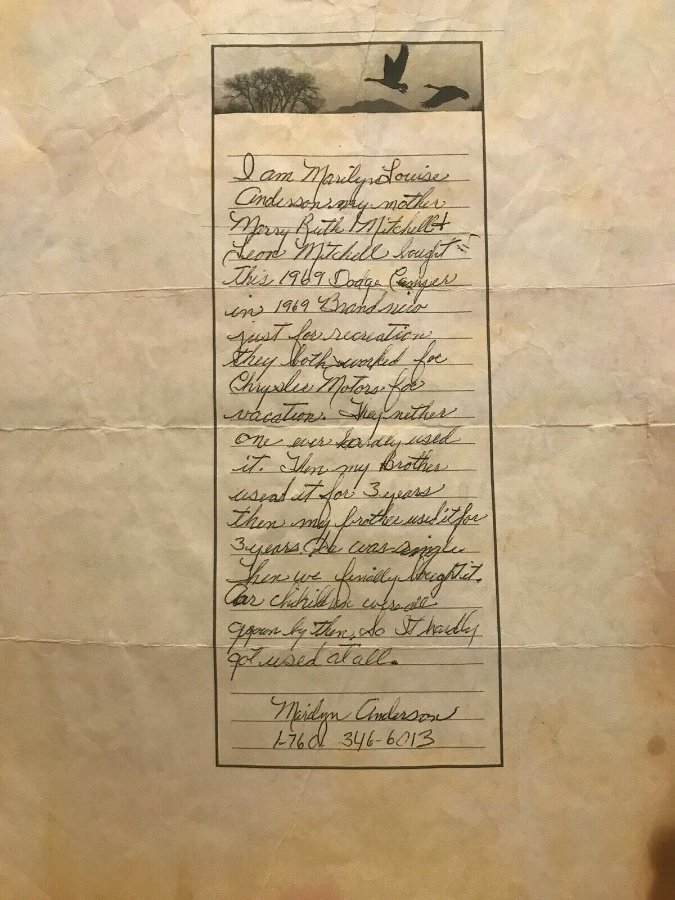 I am Marilyn Louise
Anderson. my mother
Merry Ruth Mitchell +
Leon Mitchell bought
this 1969 Dodge Camper
in 1969 Brand new
just for recreation
they both worked for
Chrysler Motors for
vacation. They nither
one ever hardey used
it. Then my Brother
used it for 3 years
then my brother used it for
3 years. He was single
Then we finally bought it.
Our were all
grown by then, So It hardly
got used at all.
Marilyn Anderson
1-760 346-6013